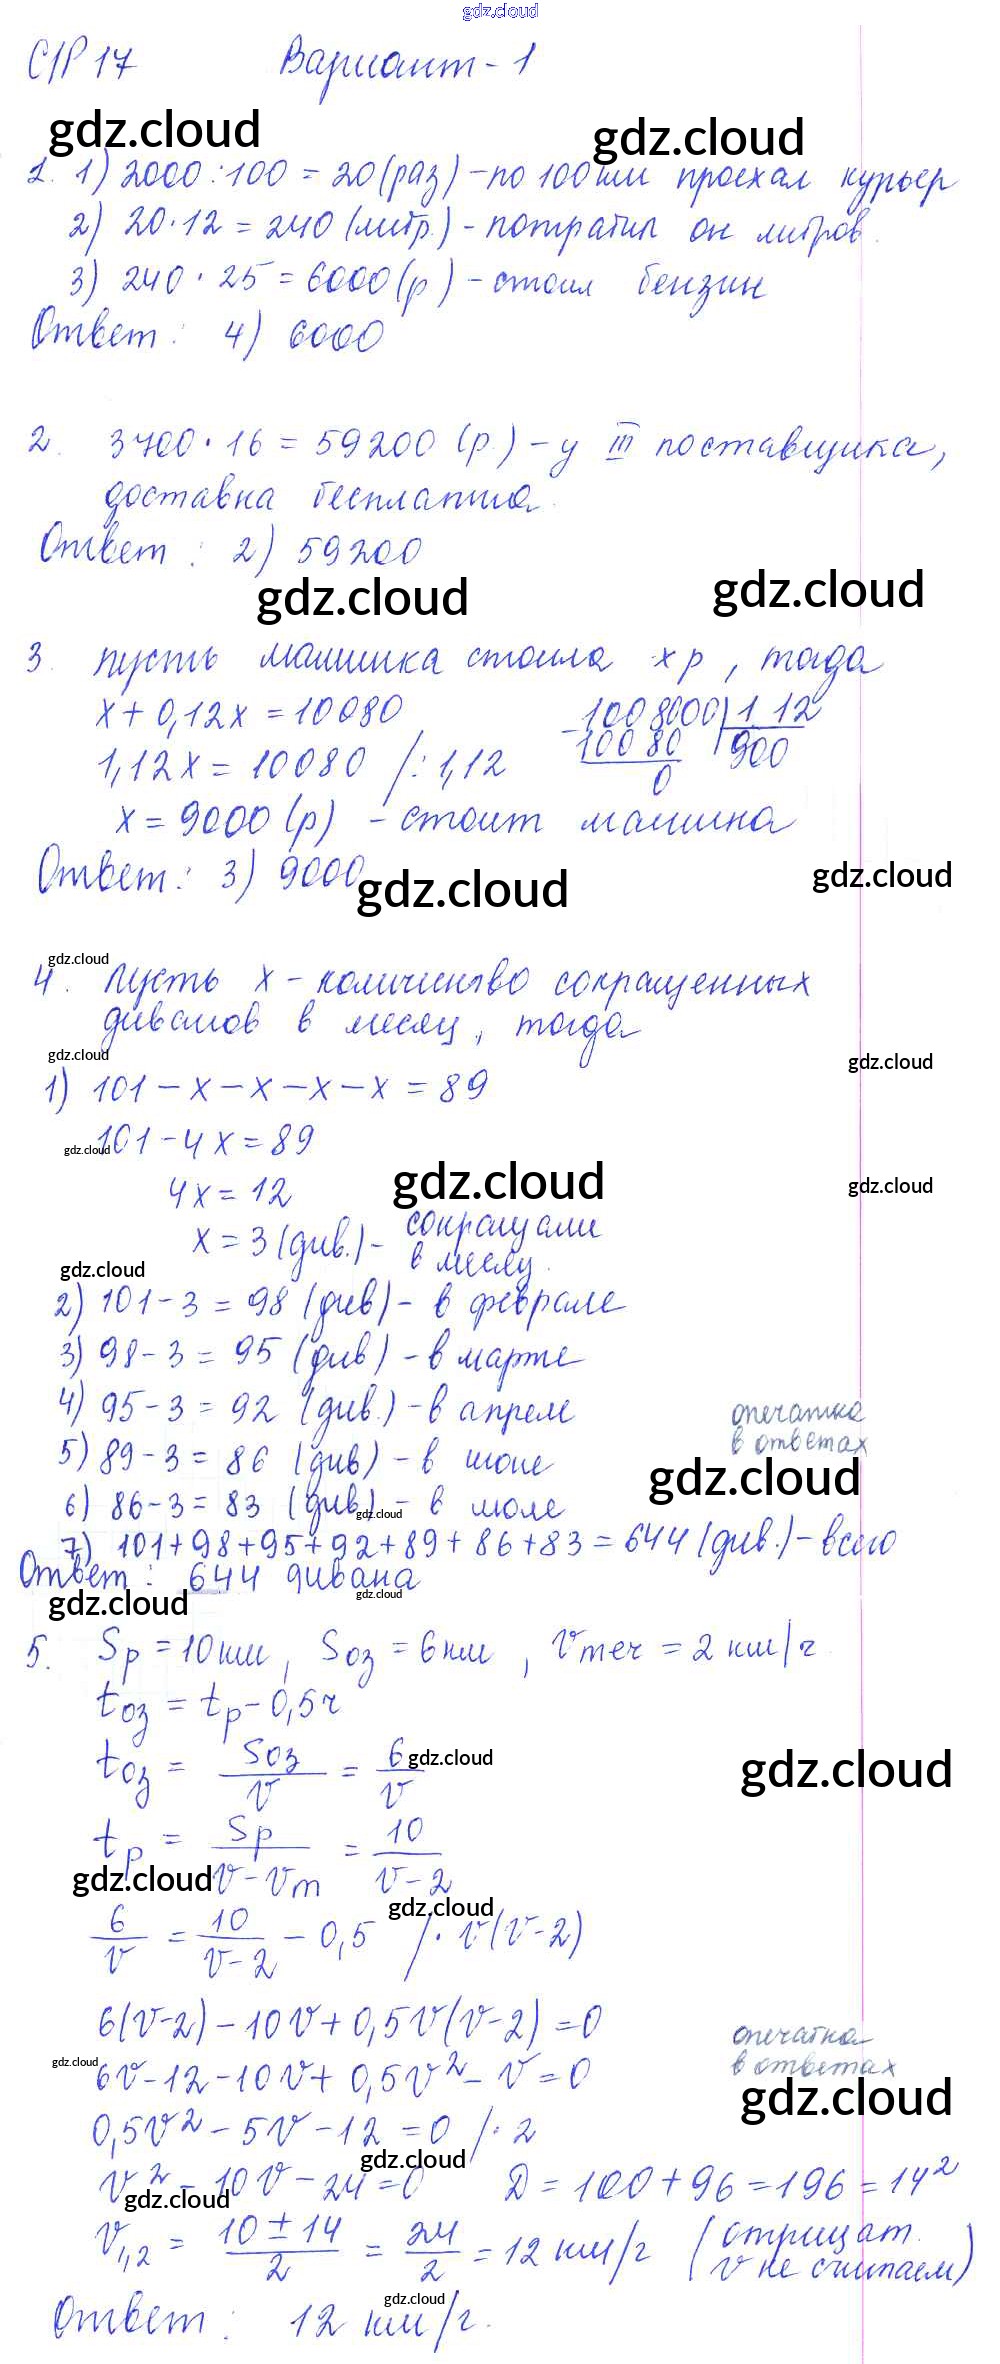 gdz.cloud
С/Р 17 Вариант-1
gdz.cloud gdz.cloud
1. 1) 2000:100 = 20 (раз) - по 100 км проехал курьер
2) 20·12 = 240 (литр.) - потратил он литров.
3) 240·25 = 6000 (р) - стоил бензин
Ответ: 4) 6000
2. 3700·16 = 59200 (р.) - у III поставщика,
доставка бесплатна.
Ответ: 2) 59200
gdz.cloud gdz.cloud
3. Пусть машинка стоила x р, тогда
x + 0,12x = 10080
1008000 | 112
1,12x = 10080 /:1,12
10080 900
0
x = 9000 (р) - стоит машина
Ответ: 3) 9000
gdz.cloud gdz.cloud
gdz.cloud
4. Пусть x - количество сокращенных
диванов в месяц, тогда
gdz.cloud gdz.cloud
1) 101 - x - x - x - x = 89
101 - 4x = 89
gdz.cloud
4x = 12
gdz.cloud gdz.cloud
x = 3 (див.) - сокращали
в месяц.
gdz.cloud
2) 101 - 3 = 98 (див) - в феврале
3) 98 - 3 = 95 (див) - в марте
4) 95 - 3 = 92 (див.) - в апреле
опечатка
в ответах
5) 89 - 3 = 86 (див) - в июне
gdz.cloud
6) 86 - 3 = 83 (див) - в июле
gdz.cloud
7) 101 + 98 + 95 + 92 + 89 + 86 + 83 = 644 (див.) - всего
Ответ: 644 дивана
gdz.cloud gdz.cloud
5. Sр = 10 км, Sоз = 6 км, Vтеч = 2 км/ч.
tоз = tр - 0,5 ч
tоз = Sоз/V = 6/V
gdz.cloud gdz.cloud
tр = Sр/(V - Vт) = 10/(V-2)
gdz.cloud gdz.cloud
6/V = 10/(V-2) - 0,5 /· V(V-2)
6(V-2) - 10V + 0,5V(V-2) = 0
опечатка
в ответах
gdz.cloud
6V - 12 - 10V + 0,5V² - V = 0
gdz.cloud
0,5V² - 5V - 12 = 0 /·2
gdz.cloud
V² - 10V - 24 = 0 Д = 100 + 96 = 196 = 14²
gdz.cloud
V1,2 = (10 ± 14)/2 = 24/2 = 12 км/ч (отрицат.
V не считаем)
gdz.cloud
Ответ: 12 км/ч.